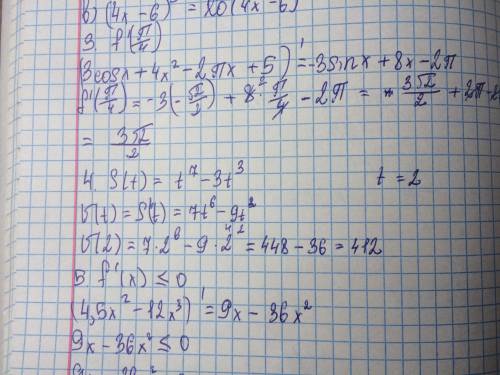 в) (4x - 6)' = 20(4x - 6)
3. f'(π/4)
(3cosx + 4x² - 2πx + 5)' = -3sinx + 8x - 2π
f'(π/4) = -3(-√2/2) + 8·π/4 - 2π = 3√2/2 + 2π -
= 3√2/2
4. S(t) = t⁷ - 3t³ t = 2
V(t) = S'(t) = 7t⁶ - 9t²
V(2) = 7·2⁶ - 9·2² = 448 - 36 = 412
5. f'(x) ≤ 0
(4,5x² - 12x³)' = 9x - 36x²
9x - 36x² ≤ 0